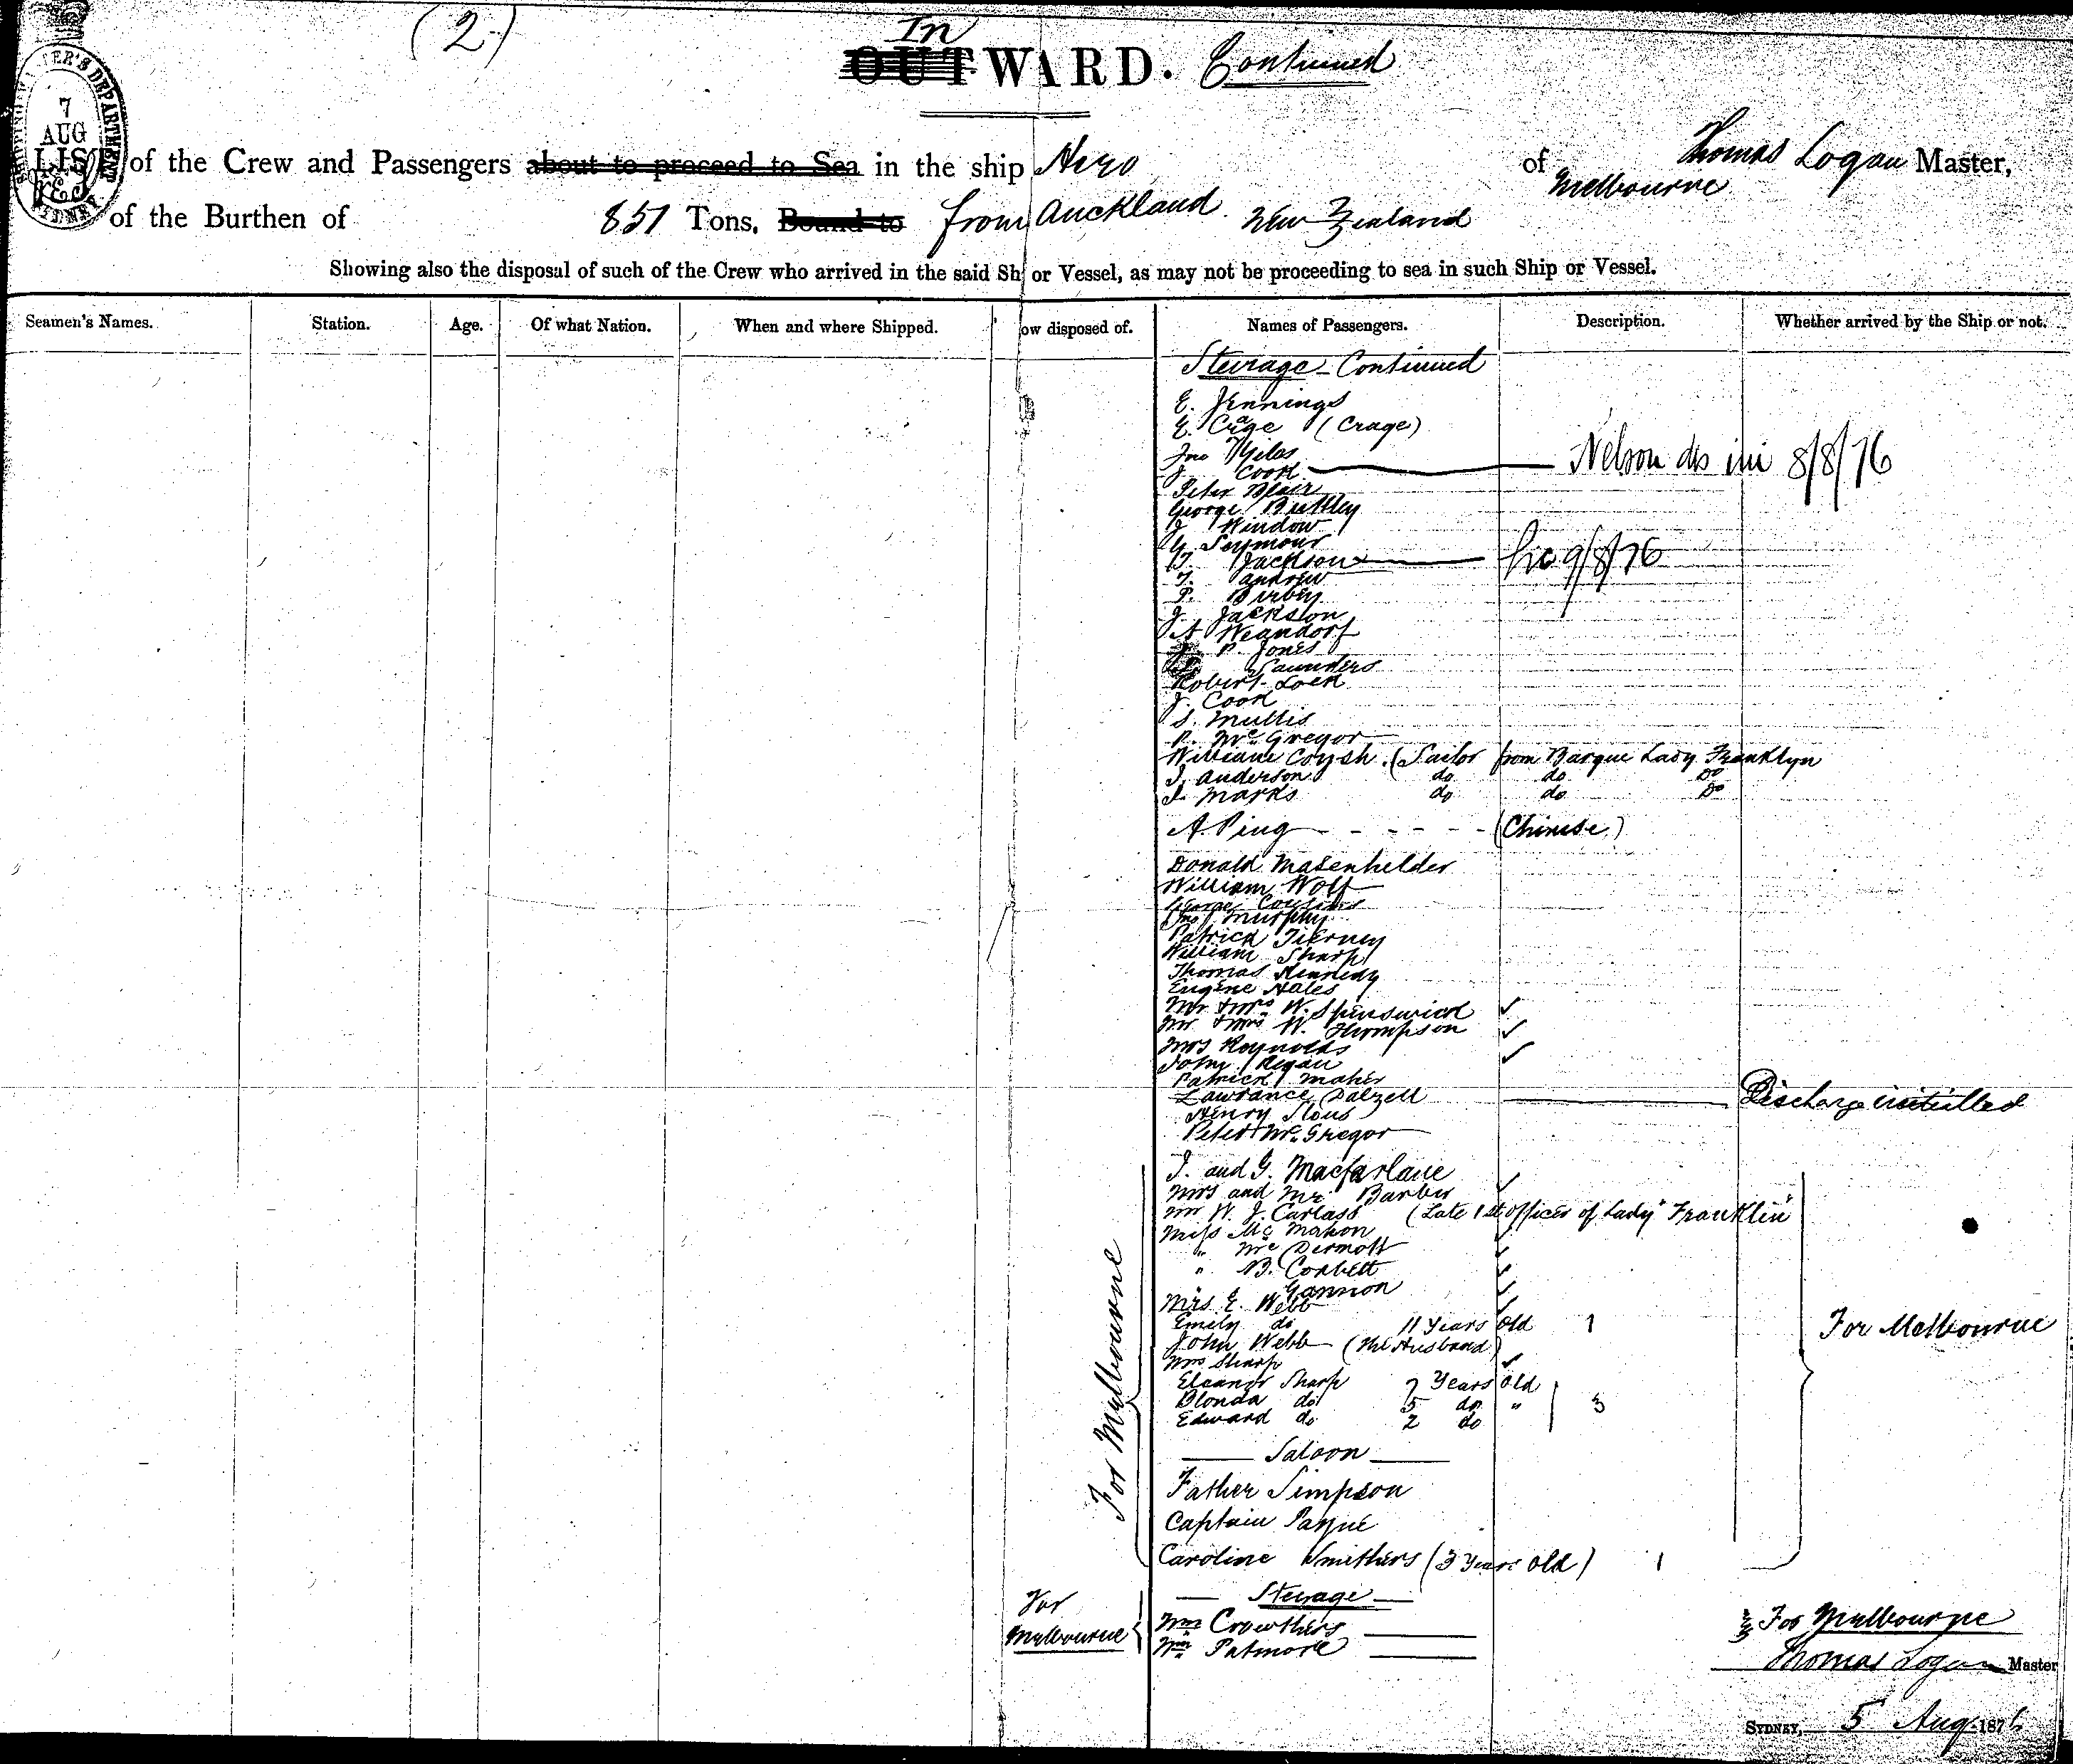 (2)
In
OUTWARD. Continued
SHIPPING MASTER'S DEPARTMENT
7
AUG
SYDNEY
LIST of the Crew and Passengers about to proceed to Sea in the ship Hero of Melbourne Thomas Logan Master,
of the Burthen of 851 Tons, Bound to from Auckland New Zealand
Showing also the disposal of such of the Crew who arrived in the said Sh or Vessel, as may not be proceeding to sea in such Ship or Vessel.
Seamen's Names. Station. Age. Of what Nation. When and where Shipped. ow disposed of. Names of Passengers. Description. Whether arrived by the Ship or not.
Steerage Continued
E. Jennings
E. Crage (Crage)
Jno Giles
J. Cook Nelson dis ini 8/8/76
Peter Blair
George Buttley
J Window
G. Seymour
T. Jackson lic 9/8/76
T. Andrew
P. Birbey
J. Jackson
A Weandorf
P. Jones
Saunders
Robert Lock
J. Cook
S. Mullis
P. McGregor
William Coysh (Sailor from Barque Lady Franklyn
J. Anderson do do Do
J. Marks do do Do
A. Ping - - - - - (Chinese)
Donald Masenhelder
William Wolf
George Cousins
Jno Murphy
Patrick Tierney
William Sharp
Thomas Kennedy
Eugene Hales
Mr & Mrs W. Spenswick ✓
Mr & Mrs W. Thompson ✓
Mrs Reynolds ✓
John Regan
Patrick Maher
Lawrance Dalzell Discharge initialled
Henry Slous
Peter McGregor
For Melbourne
J. and G. Macfarlane
Mrs and Mr Barber ✓
Mr W. J. Carlass (Late 1st Officer of Lady "Franklin"
Miss McMahon ✓
" McDermott ✓
" B. Corbett ✓
" Gannon ✓
Mrs E. Webb ✓
Emely do 11 Years Old 1
For Melbourne
John Webb (the Husband)
Mrs Sharp ✓
Eleanor Sharp 7 Years Old
Blonda do 5 do " 3
Edward do 2 do
Saloon
Father Simpson
Captain Payne
Caroline Smithers (3 Years Old) 1
Steerage
For Melbourne
Wm Crowthers
Wm Patmore
For Melbourne
Thomas Logan Master
SYDNEY, 5 Aug 1876